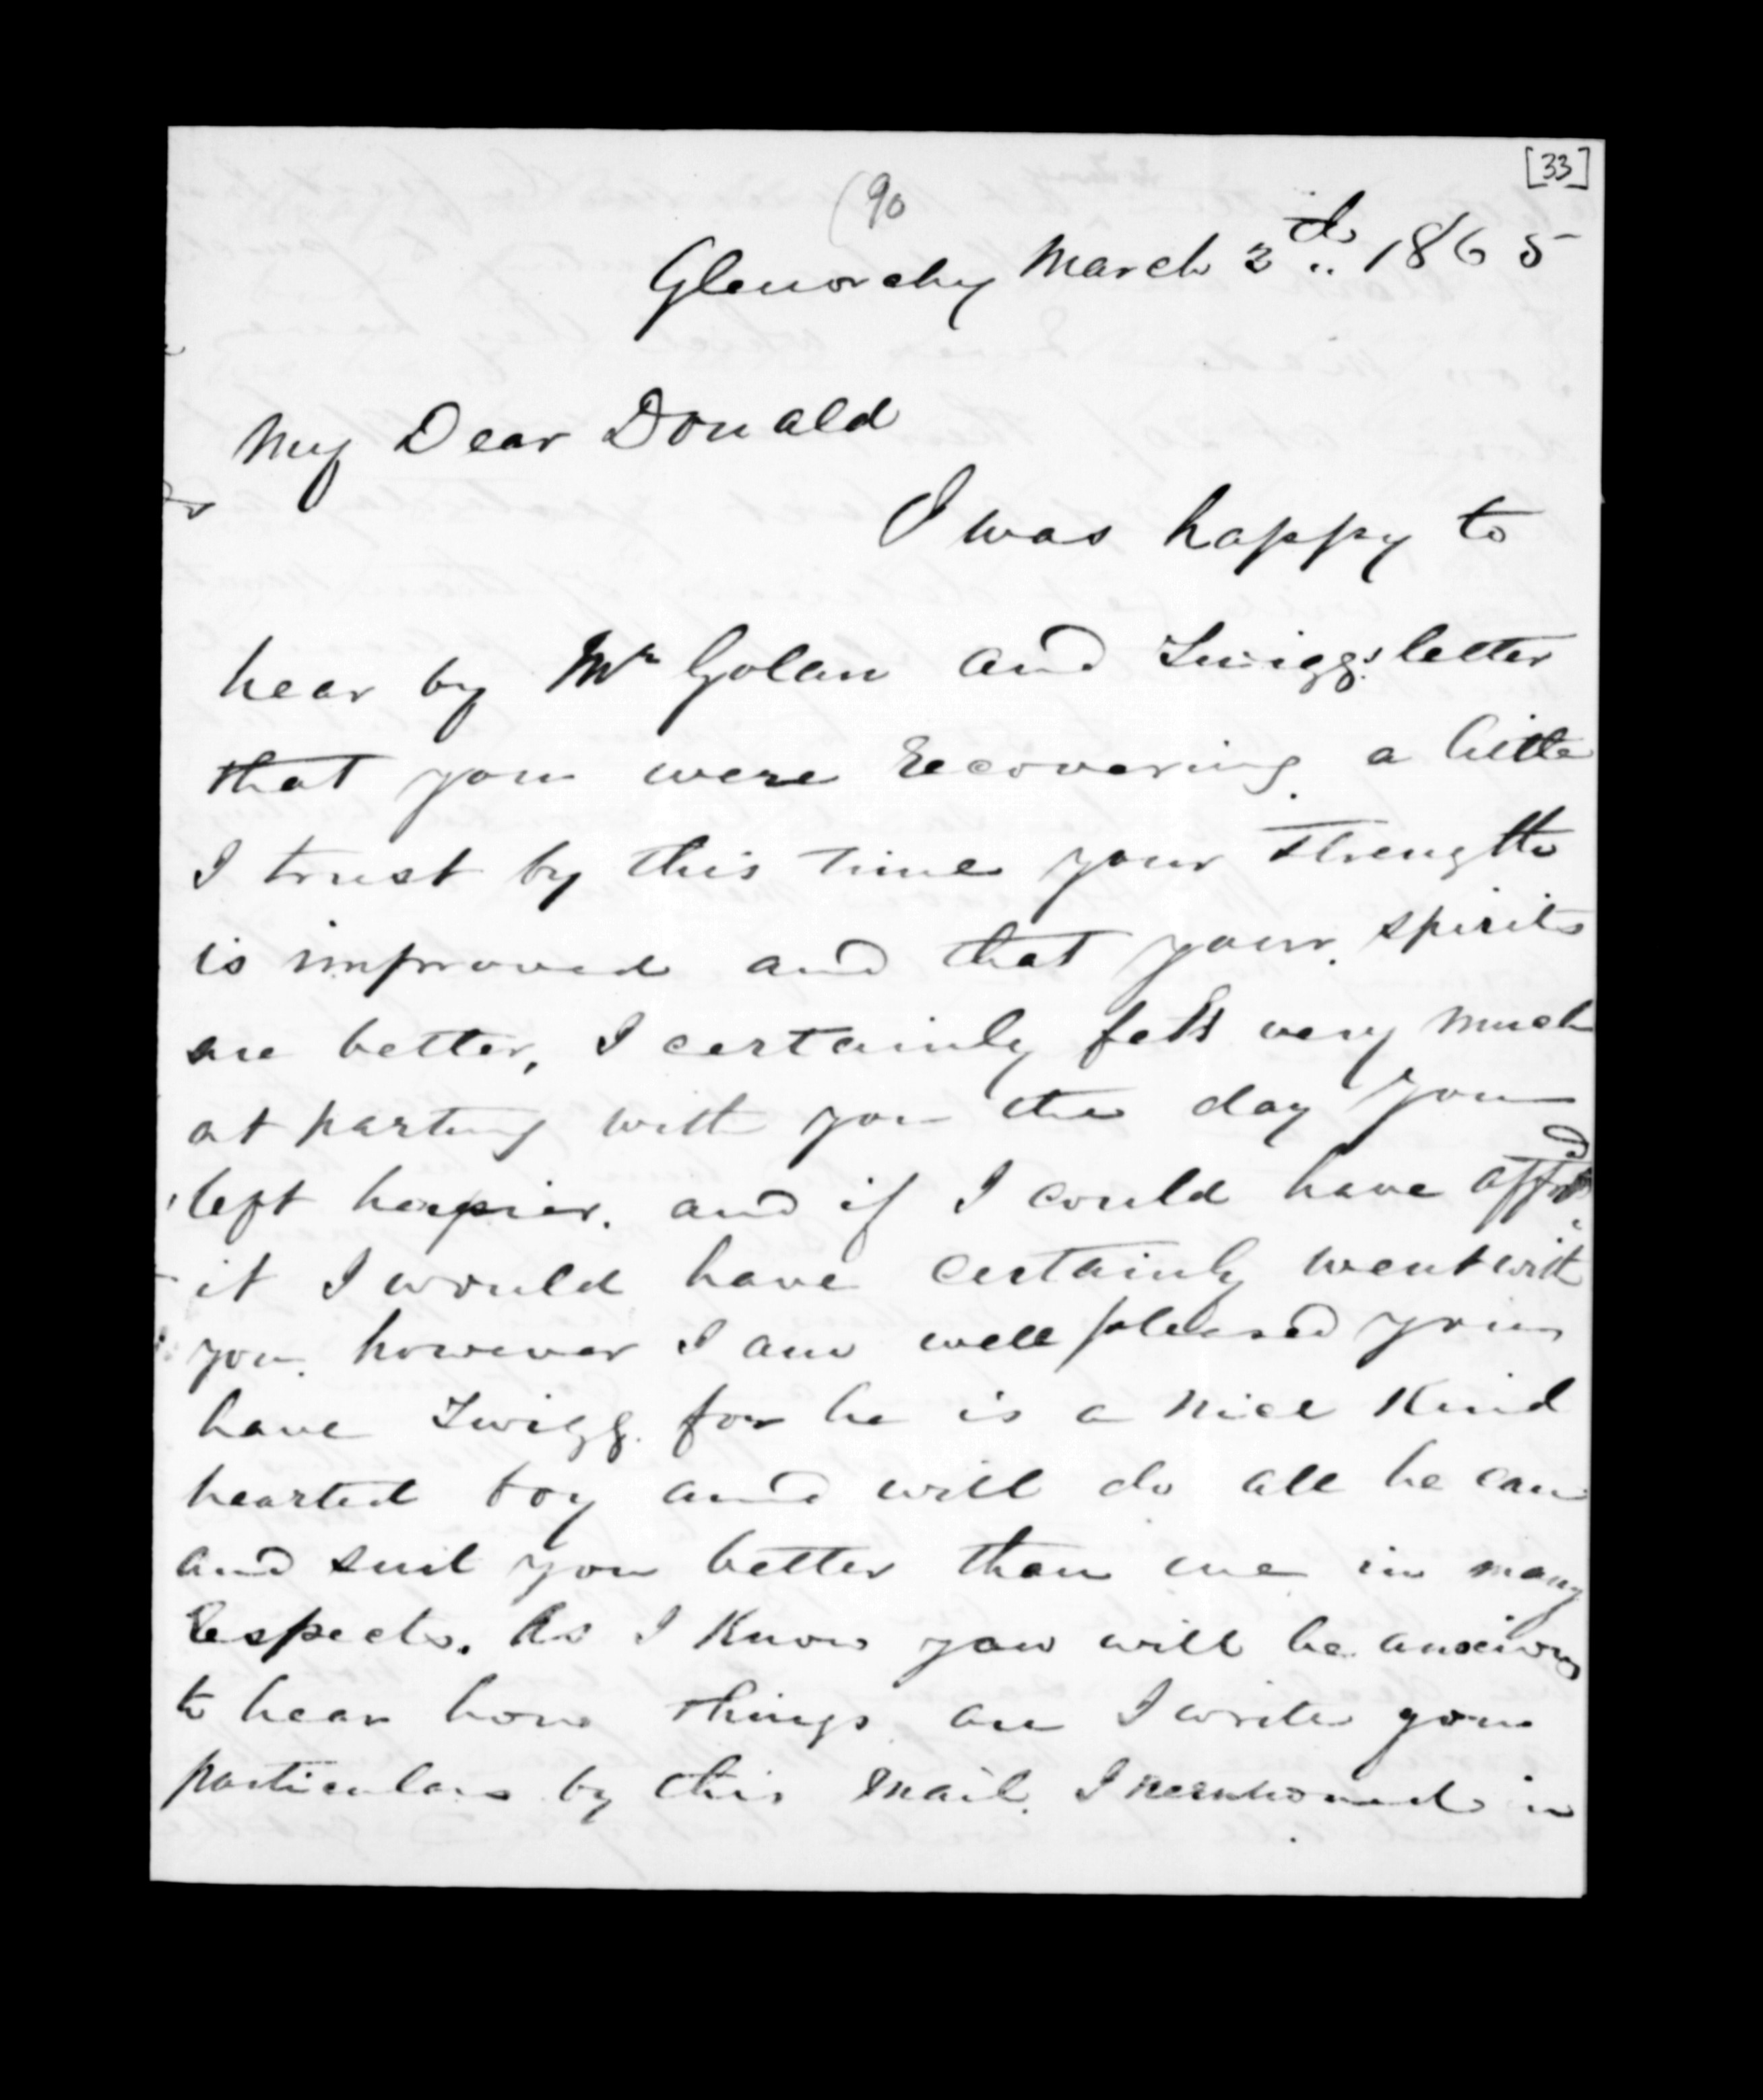 [33]
(90
Glenorchy March 2th 1865
My Dear Donald
I was happy to
hear by Mr Golan and Twiggs letter
that you were recovering a little
I trust by this time your strength
is improved and that your spirits
are better, I certainly felt very much
at parting with you the day you
left Napier. and if I could have afford
it I would have certainly went with
you. however I am well pleased you
have Twigg. for he is a nice Kind
hearted boy and will do all he can
and suit you better than me in many
respects. As I Know you will be anxious
to hear how things are I write you
particulars by this mail. I mentioned in